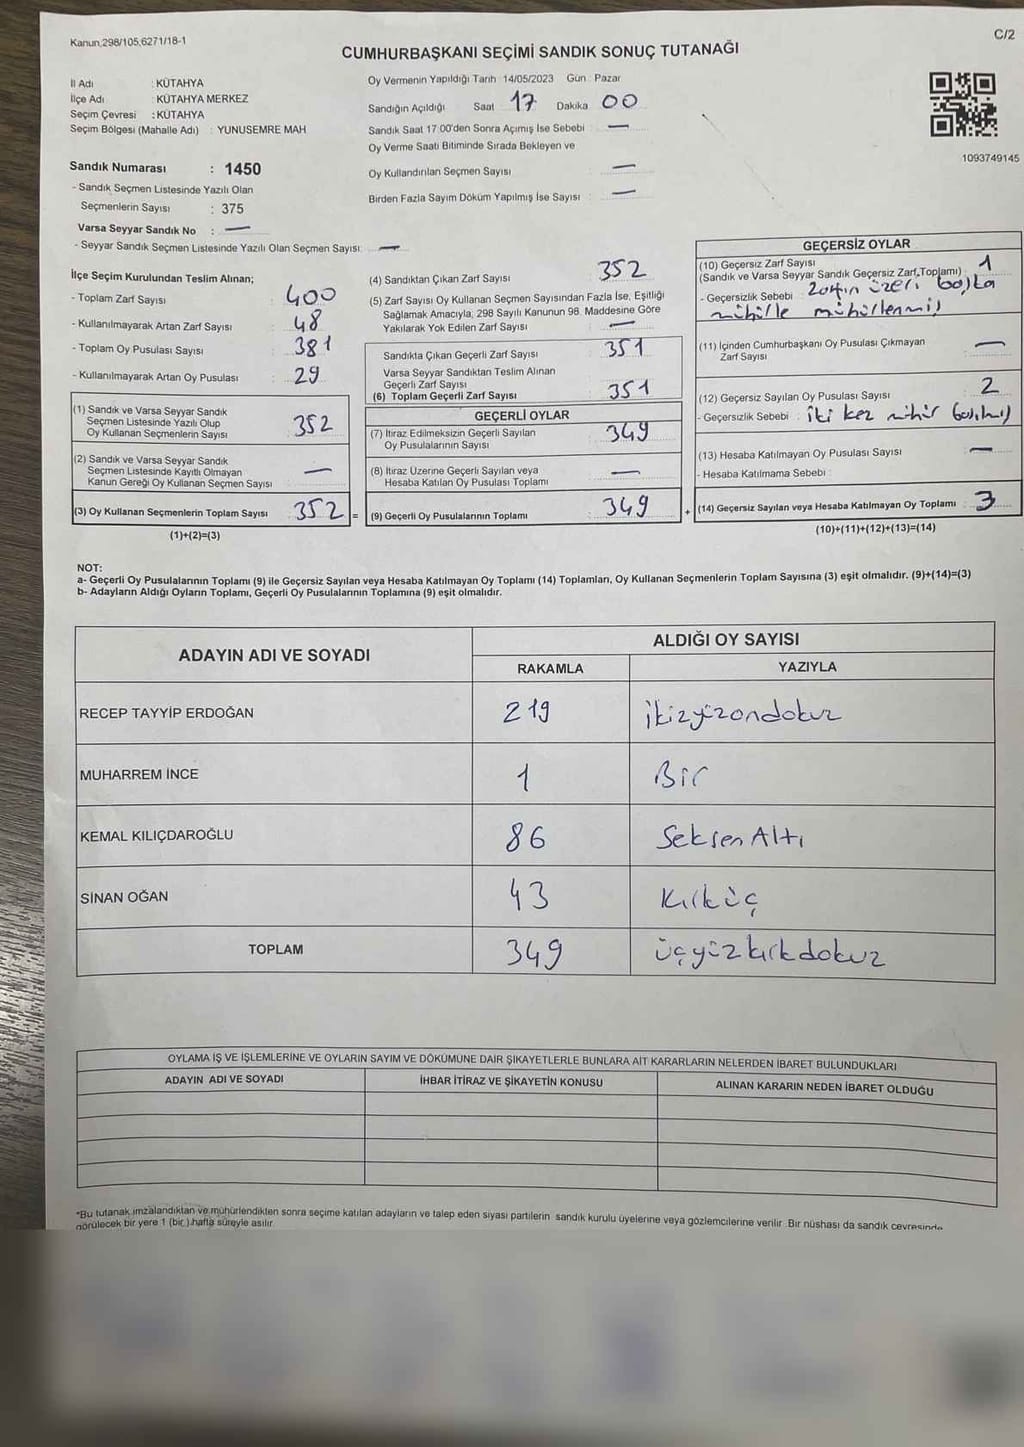 Kanun,298/105,6271/18-1
C/2
CUMHURBAŞKANI SEÇİMİ SANDIK SONUÇ TUTANAĞI
İl Adı : KÜTAHYA
İlçe Adı : KÜTAHYA MERKEZ
Seçim Çevresi : KÜTAHYA
Seçim Bölgesi (Mahalle Adı) : YUNUSEMRE MAH
Oy Vermenin Yapıldığı Tarih : 14/05/2023 Gün : Pazar
Sandığın Açıldığı Saat 17 Dakika 00
Sandık Saat 17.00'den Sonra Açımış İse Sebebi : —
Oy Verme Saati Bitiminde Sırada Bekleyen ve
Oy Kullandırılan Seçmen Sayısı : —
Birden Fazla Sayım Döküm Yapılmış İse Sayısı : —
1093749145
Sandık Numarası : 1450
- Sandık Seçmen Listesinde Yazılı Olan
Seçmenlerin Sayısı : 375
Varsa Seyyar Sandık No : —
- Seyyar Sandık Seçmen Listesinde Yazılı Olan Seçmen Sayısı: —
İlçe Seçim Kurulundan Teslim Alınan;
- Toplam Zarf Sayısı : 400
- Kullanılmayarak Artan Zarf Sayısı : 48
- Toplam Oy Pusulası Sayısı : 381
- Kullanılmayarak Artan Oy Pusulası : 29
(1) Sandık ve Varsa Seyyar Sandık
Seçmen Listesinde Yazılı Olup
Oy Kullanan Seçmenlerin Sayısı : 352
(2) Sandık ve Varsa Seyyar Sandık
Seçmen Listesinde Kayıtlı Olmayan
Kanun Gereği Oy Kullanan Seçmen Sayısı : —
(3) Oy Kullanan Seçmenlerin Toplam Sayısı : 352 =
(1)+(2)=(3)
(4) Sandıktan Çıkan Zarf Sayısı : 352
(5) Zarf Sayısı Oy Kullanan Seçmen Sayısından Fazla İse, Eşitliği
Sağlamak Amacıyla; 298 Sayılı Kanunun 98. Maddesine Göre
Yakılarak Yok Edilen Zarf Sayısı : —
Sandıkta Çıkan Geçerli Zarf Sayısı : 351
Varsa Seyyar Sandıktan Teslim Alınan
Geçerli Zarf Sayısı :
(6) Toplam Geçerli Zarf Sayısı : 351
GEÇERLİ OYLAR
(7) İtiraz Edilmeksizin Geçerli Sayılan
Oy Pusulalarının Sayısı : 349
(8) İtiraz Üzerine Geçerli Sayılan veya
Hesaba Katılan Oy Pusulası Toplamı : —
(9) Geçerli Oy Pusulalarının Toplamı : 349 +
GEÇERSİZ OYLAR
(10) Geçersiz Zarf Sayısı
(Sandık ve Varsa Seyyar Sandık Geçersiz Zarf Toplamı) : 1
- Geçersizlik Sebebi : zarfın üzeri başka
mühürle mühürlenmiş
(11) İçinden Cumhurbaşkanı Oy Pusulası Çıkmayan
Zarf Sayısı : —
(12) Geçersiz Sayılan Oy Pusulası Sayısı : 2
- Geçersizlik Sebebi : iki kez mühür basılmış
(13) Hesaba Katılmayan Oy Pusulası Sayısı : —
- Hesaba Katılmama Sebebi :
(14) Geçersiz Sayılan veya Hesaba Katılmayan Oy Toplamı : 3
(10)+(11)+(12)+(13)=(14)
NOT:
a- Geçerli Oy Pusulalarının Toplamı (9) ile Geçersiz Sayılan veya Hesaba Katılmayan Oy Toplamı (14) Toplamları, Oy Kullanan Seçmenlerin Toplam Sayısına (3) eşit olmalıdır. (9)+(14)=(3)
b- Adayların Aldığı Oyların Toplamı, Geçerli Oy Pusulalarının Toplamına (9) eşit olmalıdır.
ADAYIN ADI VE SOYADI ALDIĞI OY SAYISI
RAKAMLA YAZIYLA
RECEP TAYYİP ERDOĞAN 219 ikizyüzondokuz
MUHARREM İNCE 1 Bir
KEMAL KILIÇDAROĞLU 86 Seksen Altı
SİNAN OĞAN 43 Kırküç
TOPLAM 349 üçyüzkırkdokuz
OYLAMA İŞ VE İŞLEMLERİNE VE OYLARIN SAYIM VE DÖKÜMÜNE DAİR ŞİKAYETLERLE BUNLARA AİT KARARLARIN NELERDEN İBARET BULUNDUKLARI
ADAYIN ADI VE SOYADI İHBAR İTİRAZ VE ŞİKAYETİN KONUSU ALINAN KARARIN NEDEN İBARET OLDUĞU
*Bu tutanak imzalandıktan ve mühürlendikten sonra seçime katılan adayların ve talep eden siyasi partilerin sandık kurulu üyelerine veya gözlemcilerine verilir. Bir nüshası da sandık çevresinde
görülecek bir yere 1 (bir) hafta süreyle asılır.